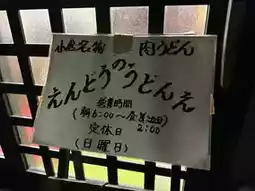 小倉名物 肉うどん
えんどうのうどんえ
営業時間
(朝6:00〜昼
2:00)
定休日
(日曜日)